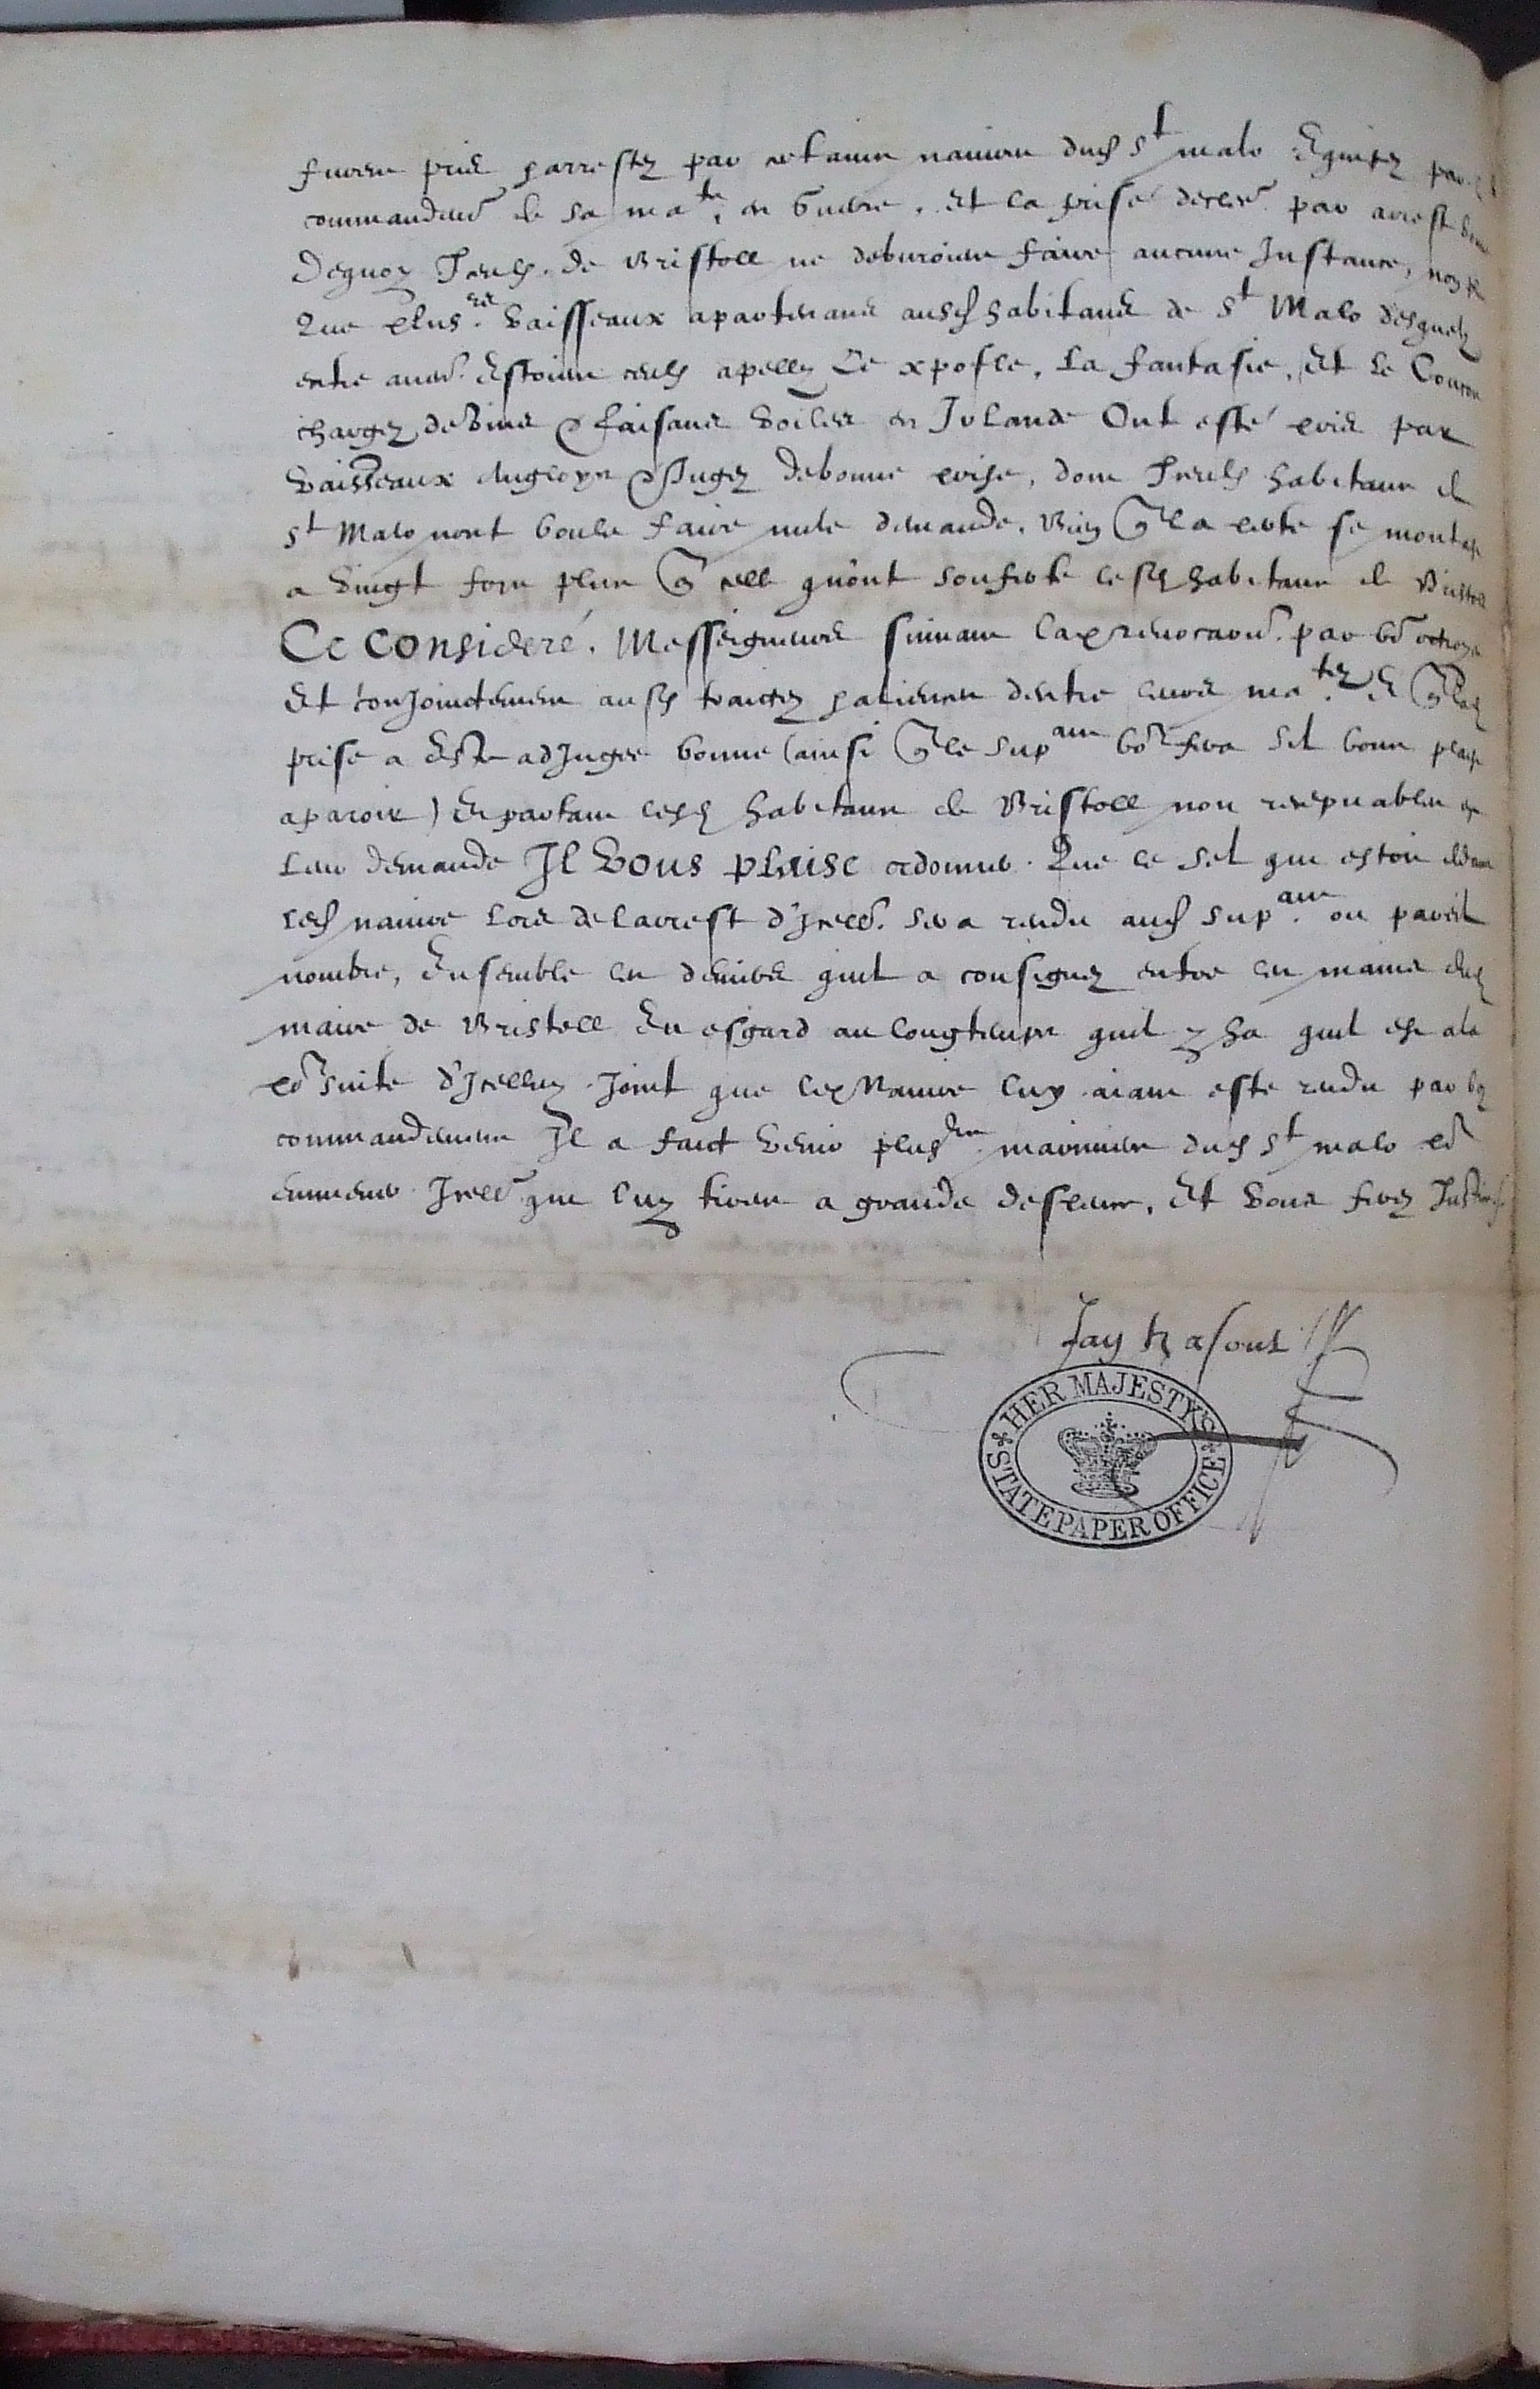 furent pris & arrestez par certains navires dud St malo Equipez par
commandemt de sa mate. en Guerre. et la prise declaree par arrest
Dequoy Iceulx de Bristoll ne debvroient faire aucune Instance, non plus
Que plusrs. vaisseaux apartenans ausd habitans de St Malo desquelz
entre autres Estoient ceulx apellez Le xpofle, La fantasie, Et Le
chargez de Vins & faisans voiles en Irlande Ont esté pris par
vaisseaux Angloys & Jugez de bonne prise, dont Iceulx habitans de
St Malo n'ont voulu faire nulle demande, Bien q la perte se montast
a vingt foys plus q celle qu'ont soufferte lesd habitans de Bristoll
Ce Consideré. Messeigneurs suivant la revocaon. par vo octroyee
Et conjoinctement ausd traictez & aliences d'entre leurs matez. Et q lad
prise a Este adJugee bonne (ainsi q le supant vo fera sil vous plaist
aparoir) Et partant lesd habitans de Bristoll non recepvables en
Leur demande Il Vous plaise ordonner. Que le sel qui estoit dedans
led navire lors de l'arrest d'Icell. sera rendu aud supant. ou pareil
nombre, Ensemble les deniers quil a consignez entre les mains dud
maire de Bristoll Eu esgard au longtemps quil y ha quil est a la
po'suite d'Icelluy. Joint que led Navire luy aiant esté rendu par vo
commandement Il a faict venir plusrs mariniers dud St malo po
emmener Icell que luy tirent a grande despense. Et vous ferez Justice
HER MAJESTY'S STATE PAPER OFFICE